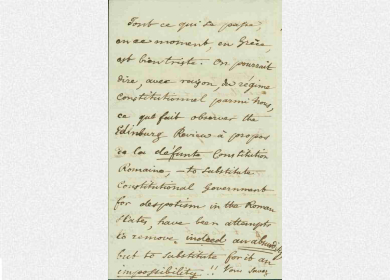 Tout ce qui se passe,
en ce moment, en Grèce,
est bien triste. On pourrait
dire, avec raison, du régime
Constitutionnel parmi nous,
ce que fait observer the
Edinburg Review à propos
de la défunte Constitution
Romaine, – to substitute
Constitutional Government
for despotism in the Roman
States, have been attempts
to remove indeed an absurdity
but to substitute for it an
impossibility!! Vous savez